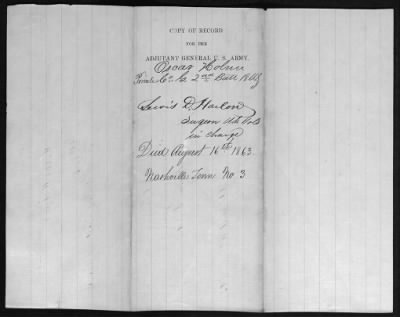 COPY OF RECORD
FOR THE
ADJUTANT GENERAL U. S. ARMY.
Oscar Holm
Private Co. 2nd Batt
Lewis D. Harlan
Surgeon USA Vols
in charge
Died August 16th 1863.
Nashville, Tenn No 3.